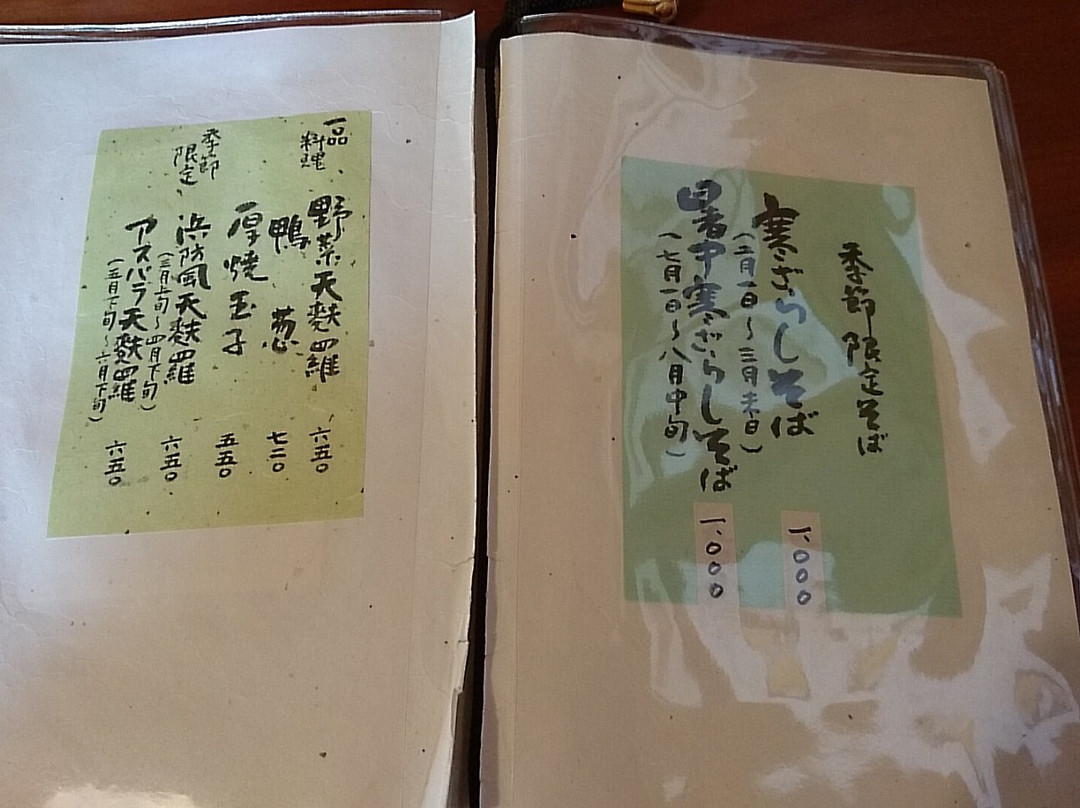 季節限定そば
寒ざらしそば 一、〇〇〇
(二月一日～三月末日)
暑中寒ざらしそば 一、〇〇〇
(七月一日～八月中旬)
一品料理、
野菜天麩羅 六五〇
鴨葱 七二〇
厚焼玉子 五五〇
季節限定、
浜防風天麩羅 六五〇
(三月下旬～四月下旬)
アスパラ天麩羅 六五〇
(五月下旬～六月下旬)